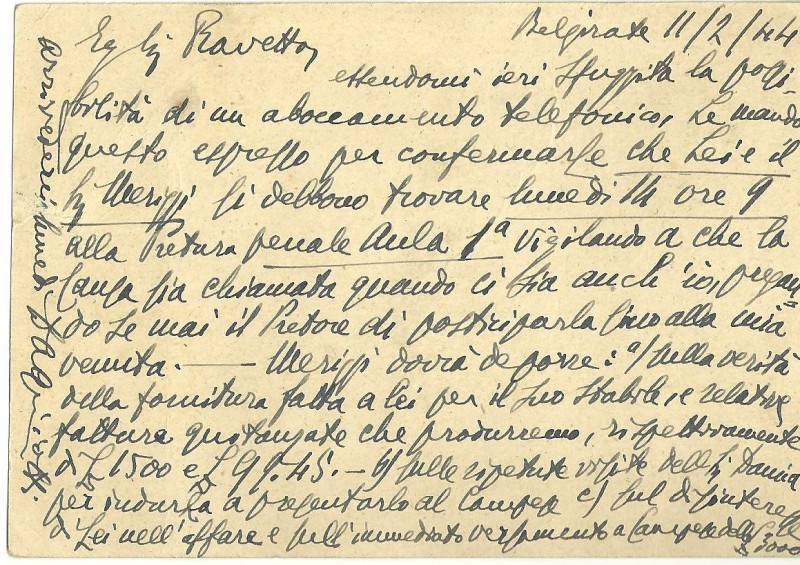 Belgirate 11/2/44
Eg Sig Ravetta,
essendomi ieri sfuggita la possi-
bilità di un abboccamento telefonico, Le mando
questo espresso per confermarle che Lei e il
Sig Merigi si debbono trovare lunedì 14 ore 9
alla Pretura penale Aula 1ª vigilando a che la
causa sia chiamata quando ci sia anch'io, pregan
do se mai il Pretore di posticiparla sino alla mia
venuta. — Merigi dovrà deporre: a) sulla verità
della fornitura fatta a Lei per il suo stabile, e relative
fatture quietanzate che produrremo, rispettivamente
di £ 1500 e £ 99.45. — b) sulle ripetute visite del Sig
per indurla a presentarlo al Campese c) sul disinteresse
di Lei nell'affare e sull'immediato versamento a Campese delle £ 3000
arrivederci lunedì